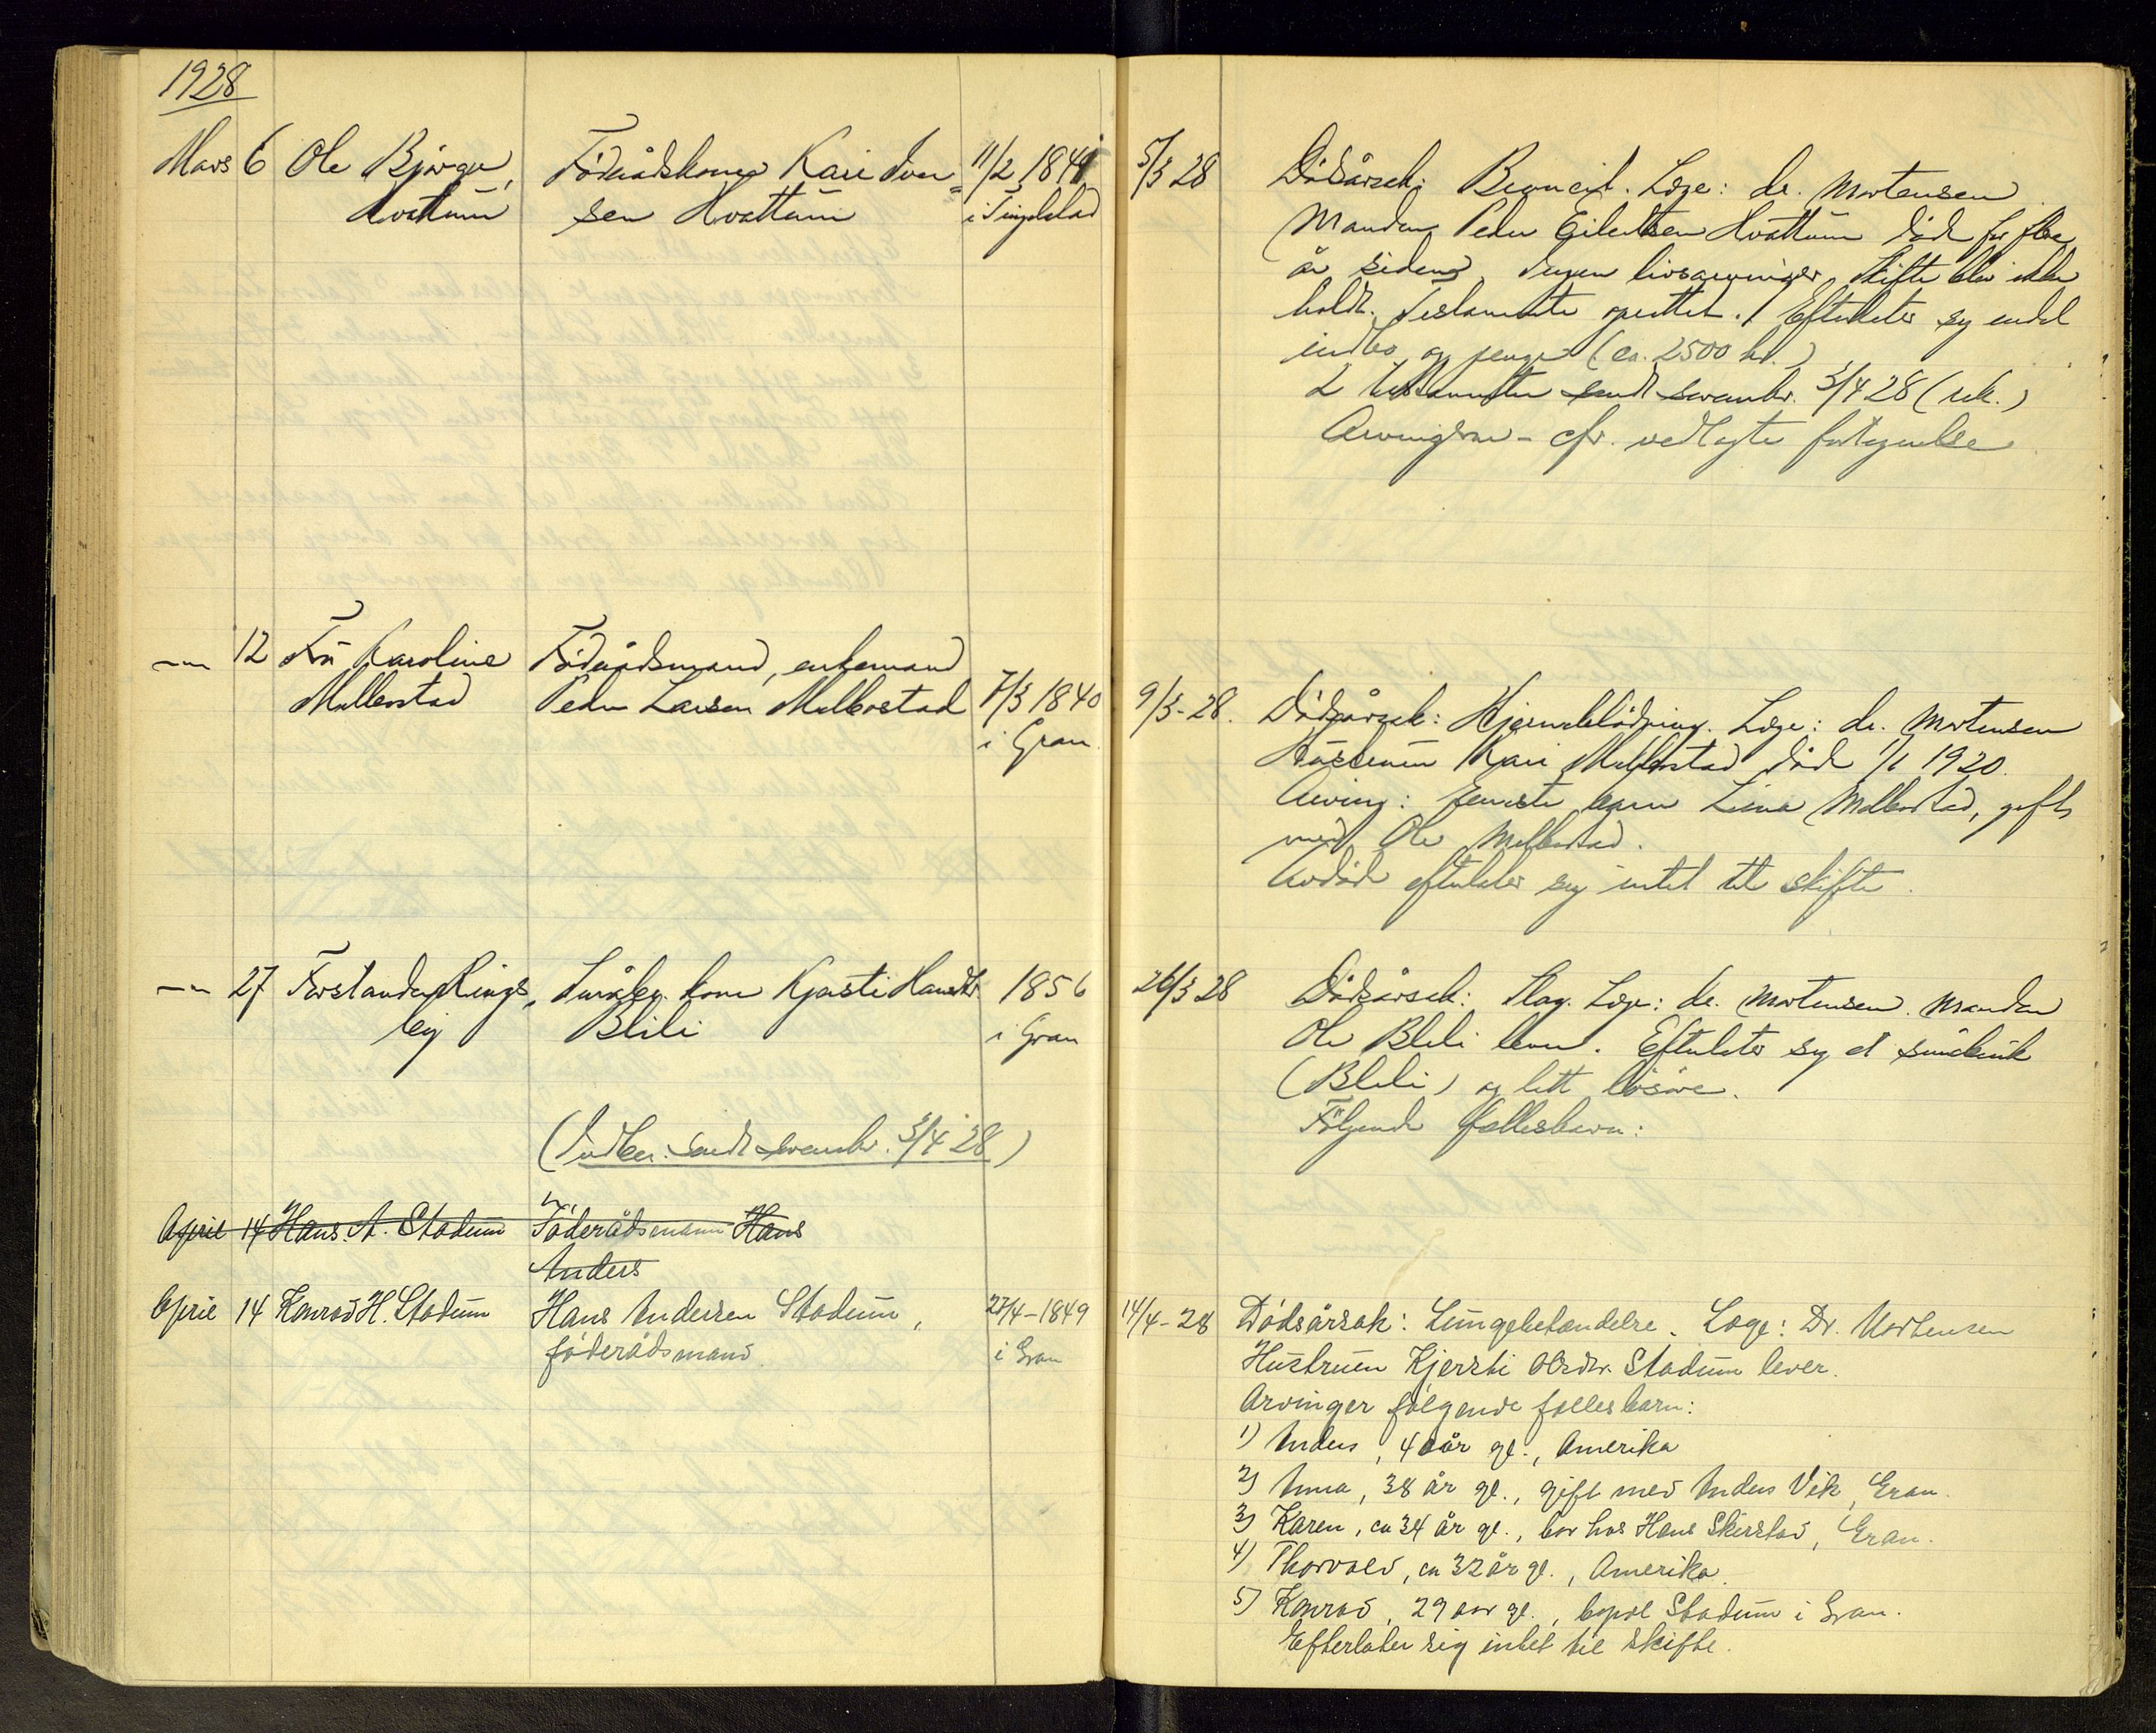 1928
Mars 6 Ole Bjørge, Føderådskone Kari Iver= 11/2 1841 5/3 28 Dødsårsak: Læge: dr. Mortensen
Hvattum sen Hvattum i Tingelstad Manden Peder Eilertsen Hvattum død for flere
år siden. Ingen livsarvinger. Skifte blev ikke
holdt. Testamente oprettet. Efterlater sig endel
indbo og penger (ca. 2500 kr.)
2 testamenter sendt sorenskr. 3/4 28 (rek.)
Arvingerne - cfr. vedlagte fortegnelse
— 12 Fru Karoline Føderådsmand, enkemand
Melbostad Peder Larsen Melbostad 7/3 1840 9/3-28. Dødsårsak: Hjerneblødning. Læge: dr. Mortensen
i Gran Hustruen Kari Melbostad død 1/1 1920.
Arving: Eneste barn Lina Melbostad, gift
med Ole Melbostad.
Avdøde efterlater sig intet til skifte.
— 27 Forstander Rings= Småbr. kone Kjersti Hansdtr. 1856 26/3 28 Dødsårsak: Slag. Læge: dr. Mortensen. Manden
by Blili i Gran Ole Blili lever. Efterlater sig et småbruk
(Blili) og litt løsøre.
Følgende fellesbarn:
(Indber. sendt sorenskr. 3/4 28)
April 14 Hans A. Stadum Føderådsmann Hans
Anders
April 14 Konrad H. Stadum Hans Andersen Stadum, 27/4-1849 14/4-28 Dødsårsak: Lungebetændelse. Læge: Dr. Mortensen
føderådsmand i Gran Hustruen Kjersti Olsdtr. Stadum lever.
Arvinger følgende fellesbarn:
1) Anders, 40 år gl., Amerika
2) Anna, 38 år gl., gift med Anders Vik, Gran.
3) Karen, ca 34 år gl., bor hos Hans Skirstad, Gran.
4) Thorvald, ca 32 år gl., Amerika.
5) Konrad, 29 aar gl., bopæl Stadum i Gran.
Efterlater sig intet til skifte.